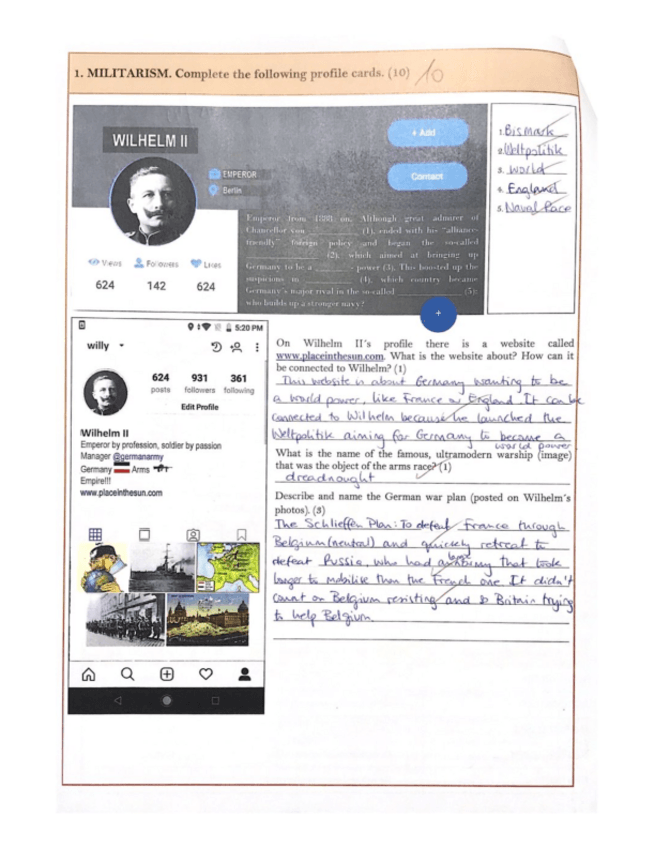 1. MILITARISM. Complete the following profile cards. (10) 10
WILHELM II
EMPEROR
Berlin
+ Add
Contact
Views
Followers
Likes
624
142
624
Emperor from 1888 on. Although great admirer of
Chancellor von ________ (1), ended with his "alliance-
friendly" foreign policy and began the so-called
________ (2), which aimed at bringing up
Germany to be a ________ power (3). This boosted up the
suspicions in ________ (4), which country became
Germany's major rival in the so-called ________ (5):
who builds up a stronger navy?
1. Bismark
2. Weltpolitik
3. World
4. England
5. Naval Race
5:20 PM
willy
624
931
361
posts
followers
following
Edit Profile
Wilhelm II
Emperor by profession, soldier by passion
Manager @germanarmy
Germany Arms
Empire!!!
www.placeinthesun.com
On Wilhelm II's profile there is a website called
www.placeinthesun.com. What is the website about? How can it
be connected to Wilhelm? (1)
This website is about Germany wanting to be
a world power, like France or England. It can be
connected to Wilhelm because he launched the
Weltpolitik aiming for Germany to become a
world power
What is the name of the famous, ultramodern warship (image)
that was the object of the arms race? (1)
dreadnought
Describe and name the German war plan (posted on Wilhelm's
photos). (3)
The Schlieffen Plan: To defeat France through
Belgium (neutral) and quickly retreat to
defeat Russia who had a army that took
longer to mobilise than the French one. It didn't
count on Belgium resisting and so Britain trying
to help Belgium.